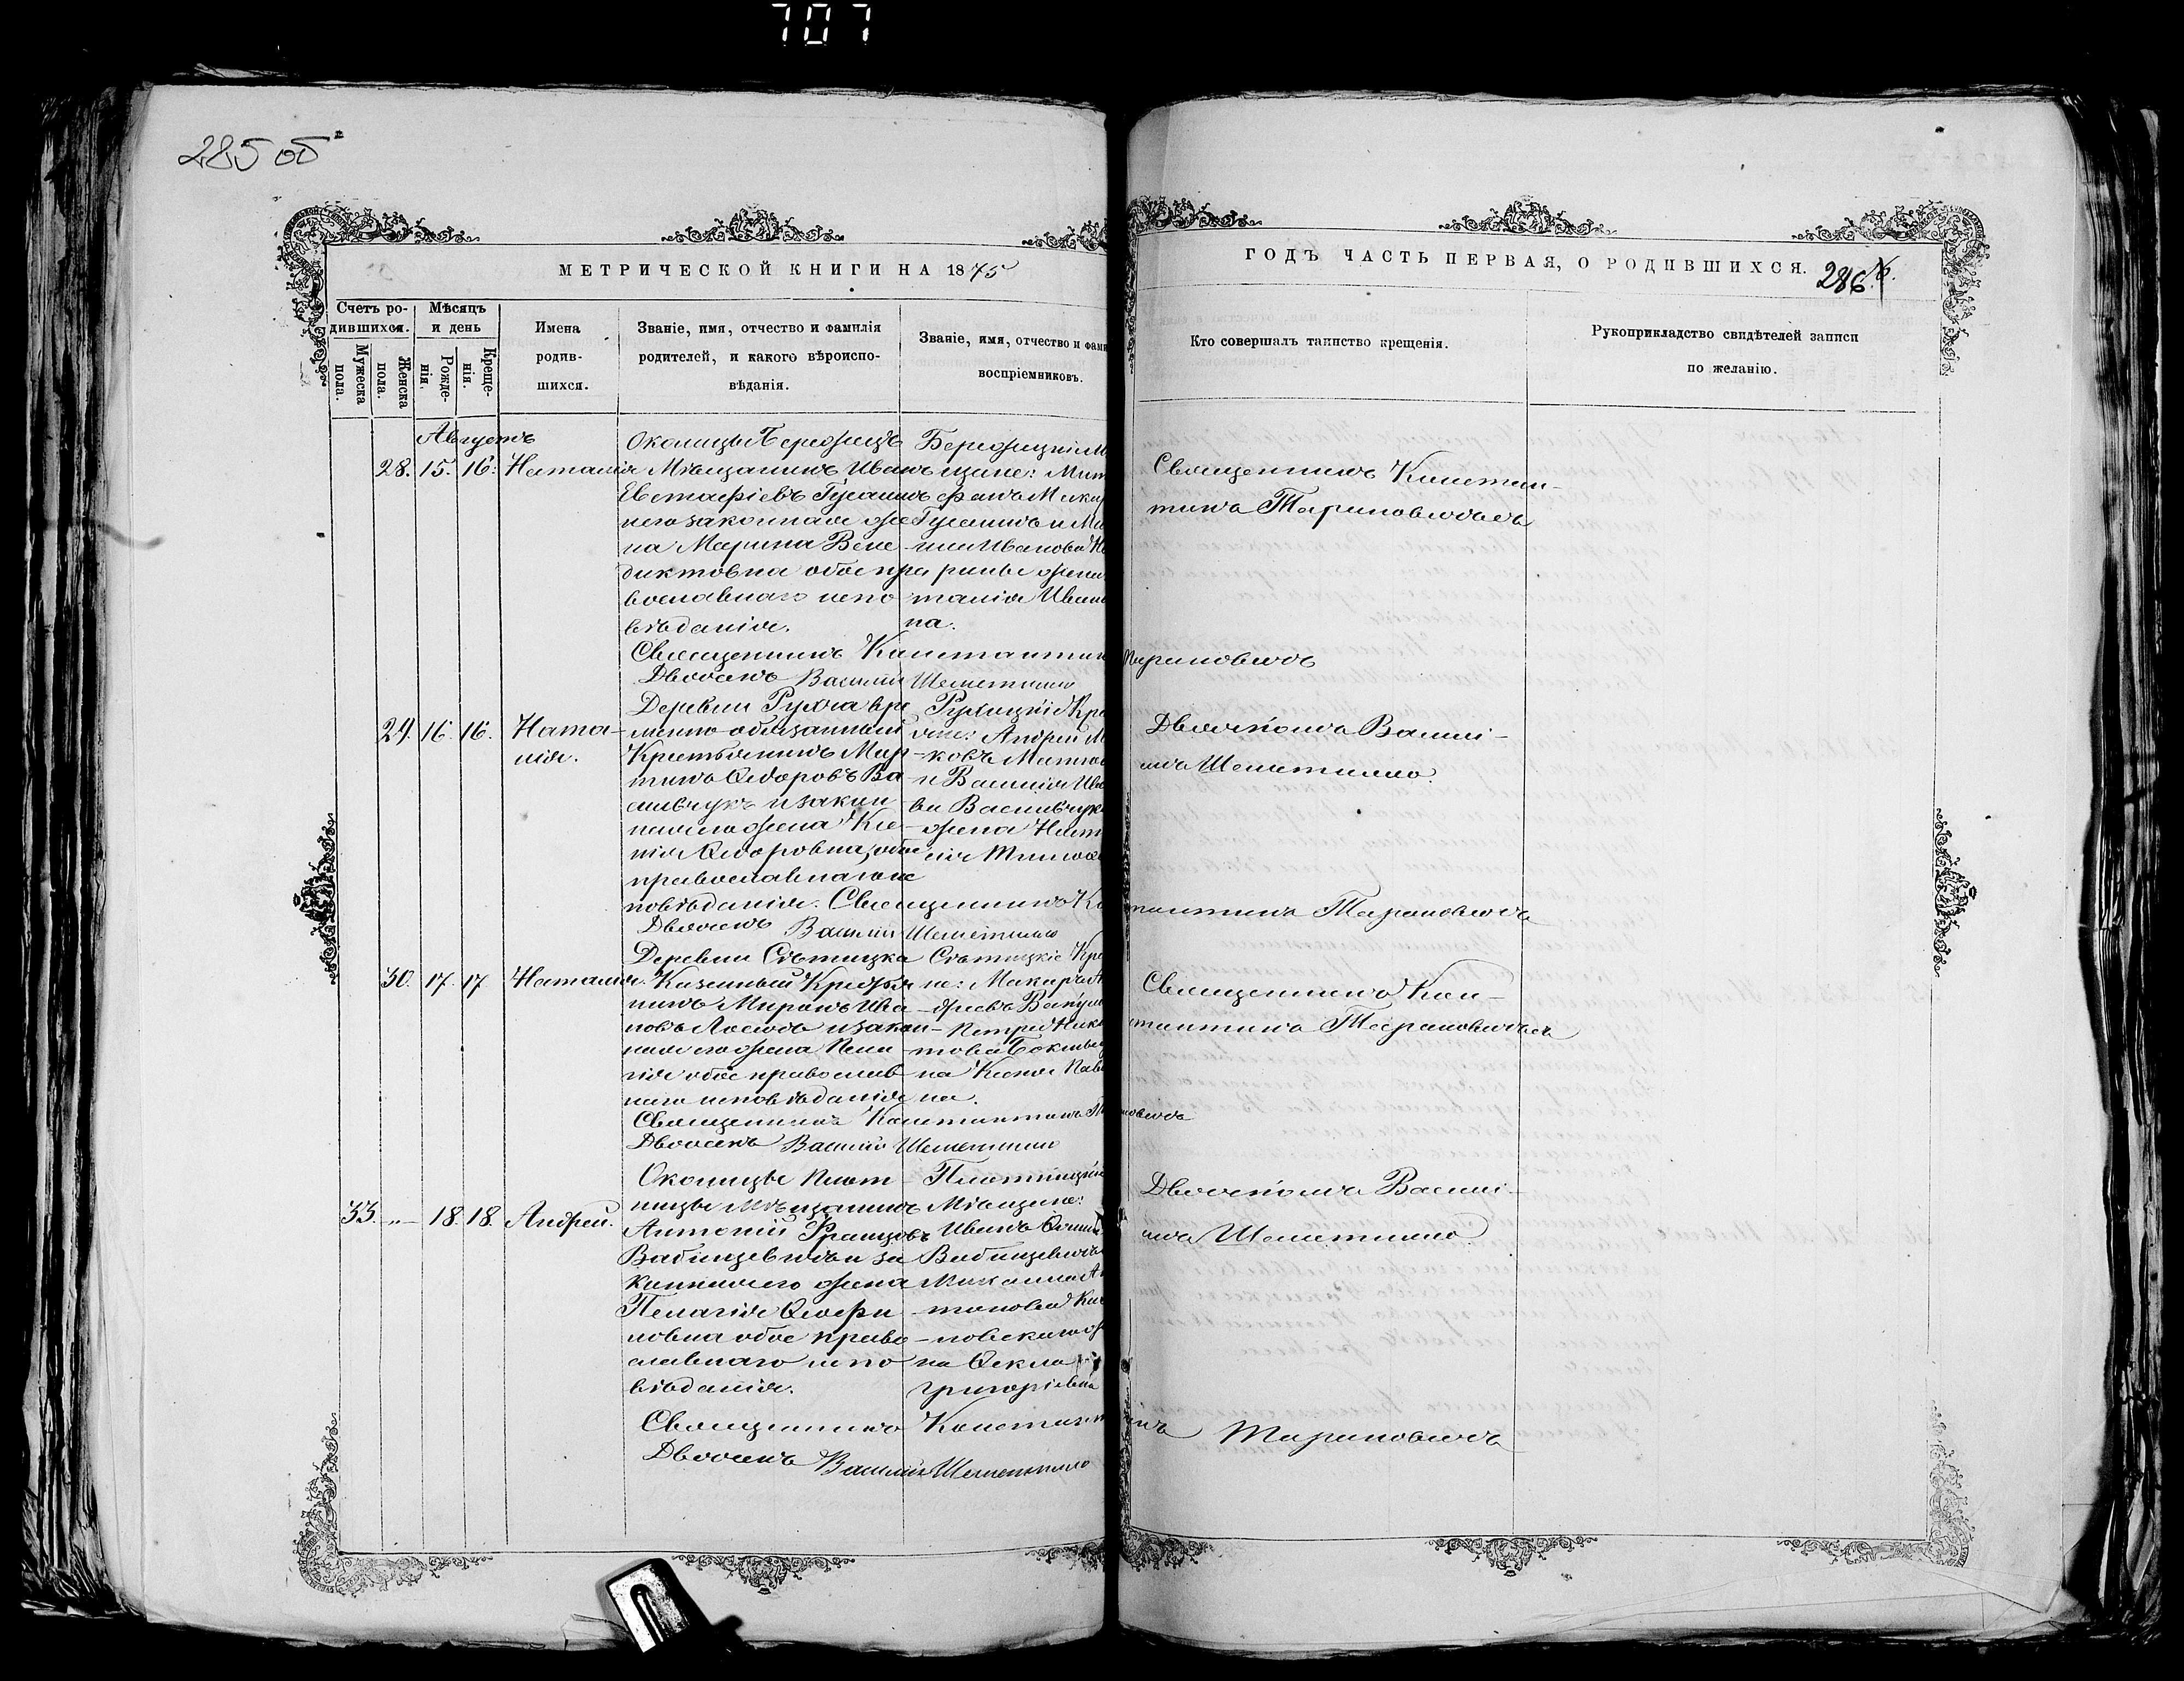 707
285 об
МЕТРИЧЕСКОЙ КНИГИ НА 1875
ГОДЪ ЧАСТЬ ПЕРВАЯ, О РОДИВШИХСЯ.
286.
Счетъ ро-
дившихся.
Мужеска пола.
Женска пола.
Мѣсяцъ
и день
Рожде-
нія.
Креще-
нія.
Имена
родив-
шихся.
Званіе, имя, отчество и фамилія
родителей, и какого вѣроиспо-
вѣданія.
Званіе, имя, отчество и фами
воспріемниковъ.
Кто совершалъ таинство крещенія.
Рукоприкладство свидѣтелей записи
по желанію.
Августъ
28. 15. 16. Наталія
Околицы Бережецъ
Мѣщанинъ Иванъ
Евстафіевъ Гусаинъ
и его законная же
на Марина Вене
диктовна обое пра
вославнаго испо
вѣданія.
Бережицкіи М
щане:
Гусаинъ и
Иванова
жена
талія Иван
на.
Священникъ Констан
тинъ Тариновичъ
Священникъ Константин
Тариновичъ
Дворянъ Василій Шеметилло
29. 16. 16. Ната-
лія.
Деревни Рухча вре
менно обязанный
Крестьянинъ Мар
тинъ Ѳедоровъ Ва
сивчукъ и закон
ная его жена Ксе
нія Ѳедоровна, обое
православнаго ис
повѣданія.
Рухчицкіе Кре
яне: Андрей М
ковъ
и Василія Ива
ва Васивчук
жена Наст
сія Тимоѳ
Дьячкомъ Васили-
емъ Шеметилло.
Священникъ Ко
нстантинъ Тариновичъ
Дворянъ Василій Шеметилло
30. 17. 17 Наталія.
Деревни Сѣтицка
Казенный Крестья
нинъ Миронъ Ива
новъ Лосичъ и закон
ная его жена Пела
гія обое православ
наго исповѣданія
Сѣтицкіе Кре
не: Макаръ А
дреевъ
Петра Ники
това
на Ксенія Пав
на.
Священникъ Кон-
стантинъ Тариновичъ
Священникъ Константинъ Тариновичъ
Дворянъ Василій Шеметилло
33. „— 18. 18. Андрей.
Околицы Плот
ницы Мѣщанинъ
Антоній Францовъ
Вабищевичъ и за
конная его жена
Пелагія Ѳеофи
ловна обое право
славнаго испо
вѣданія.
Плотницкіе
Мѣщане:
Иванъ
Вабищевичъ
Михаила А
тонова
новскаго ж
на Ѳекла
Григоріевна
Дьячкомъ Васили-
емъ Шеметилло
Священникъ Константинъ Тариновичъ
Дворянъ Василій Шеметилло